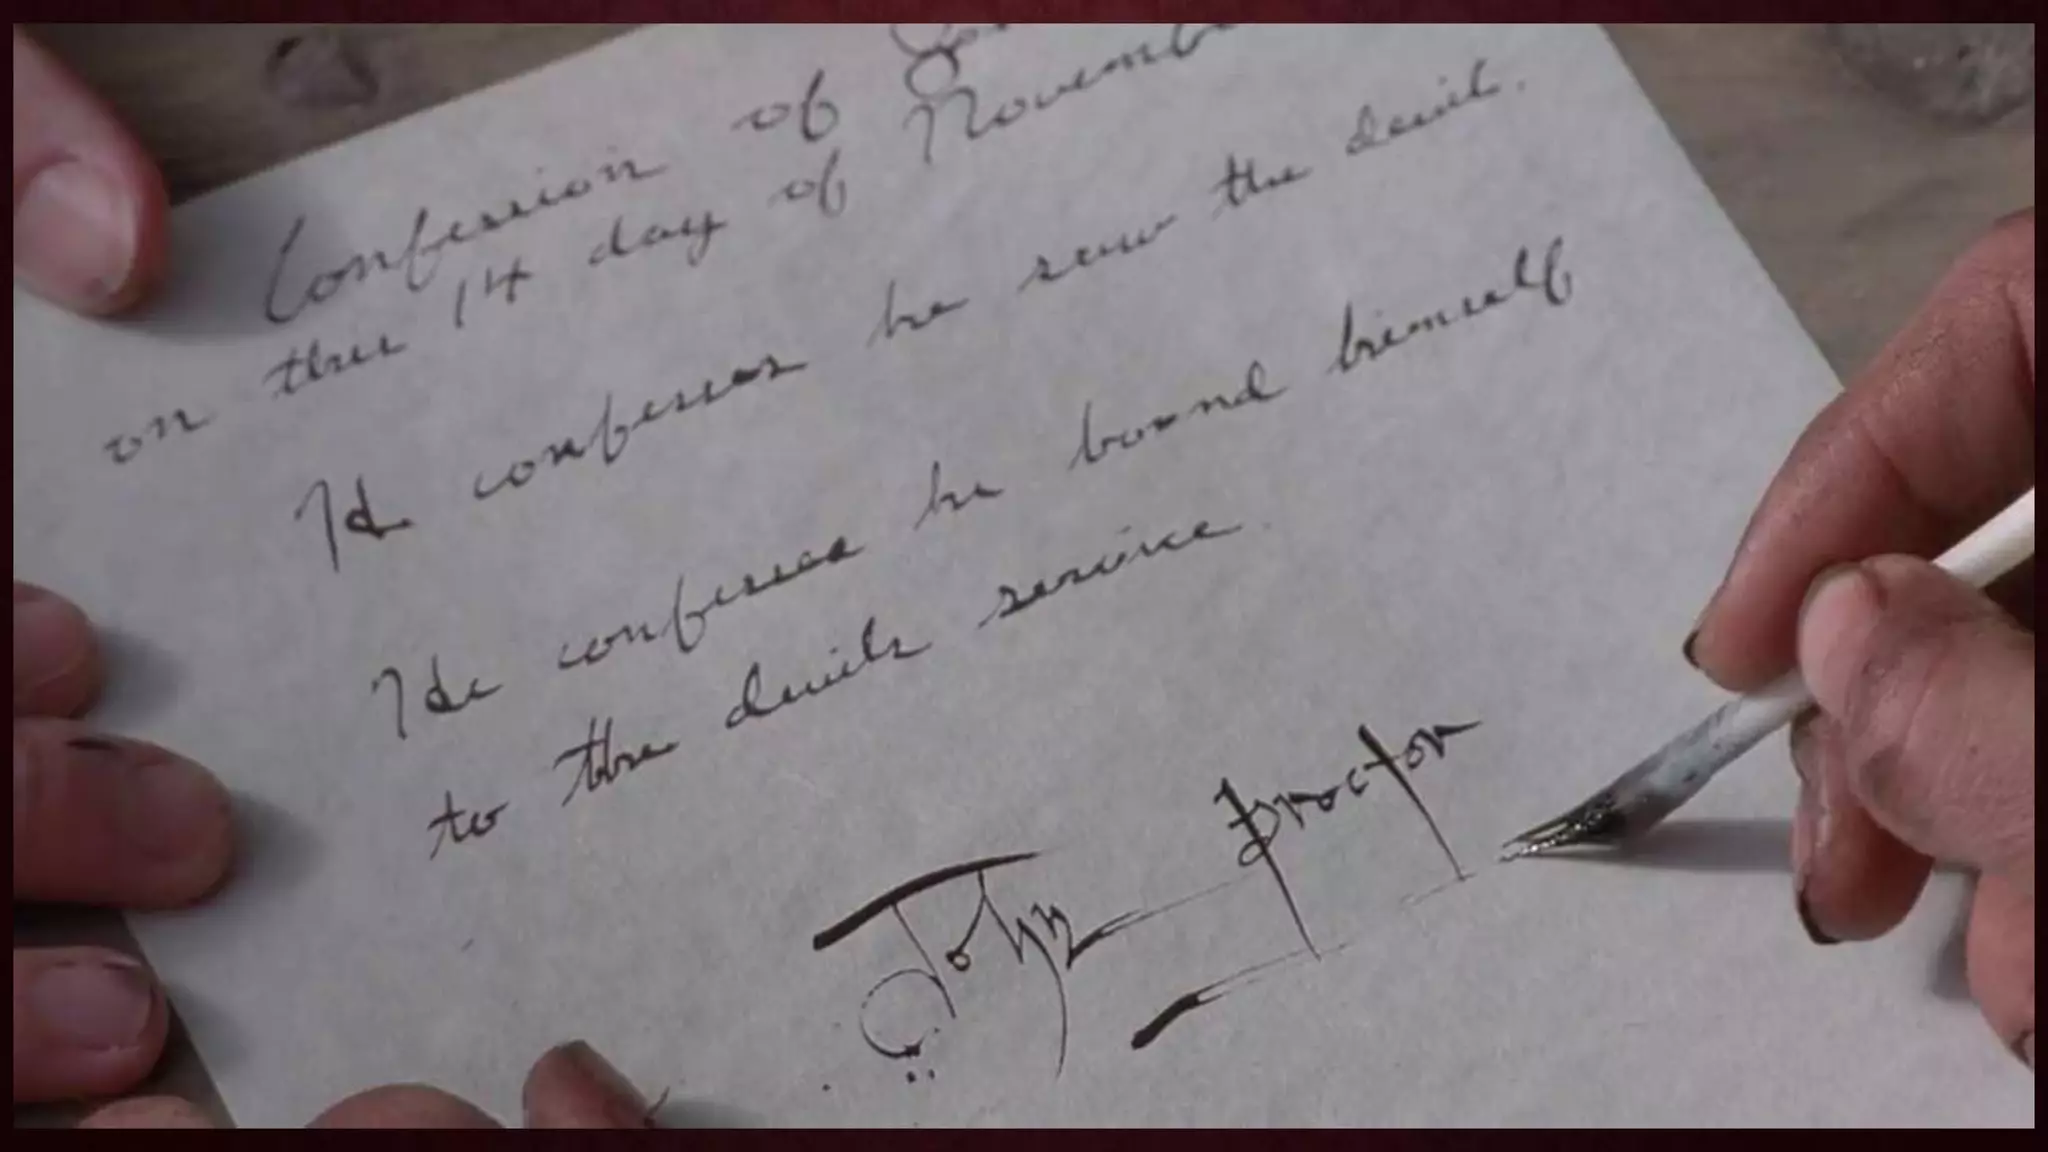 Confession of
on this 14 day of November
He confesses he saw the devil.
He confesses he bound himself
to the devils service.
John Proctor